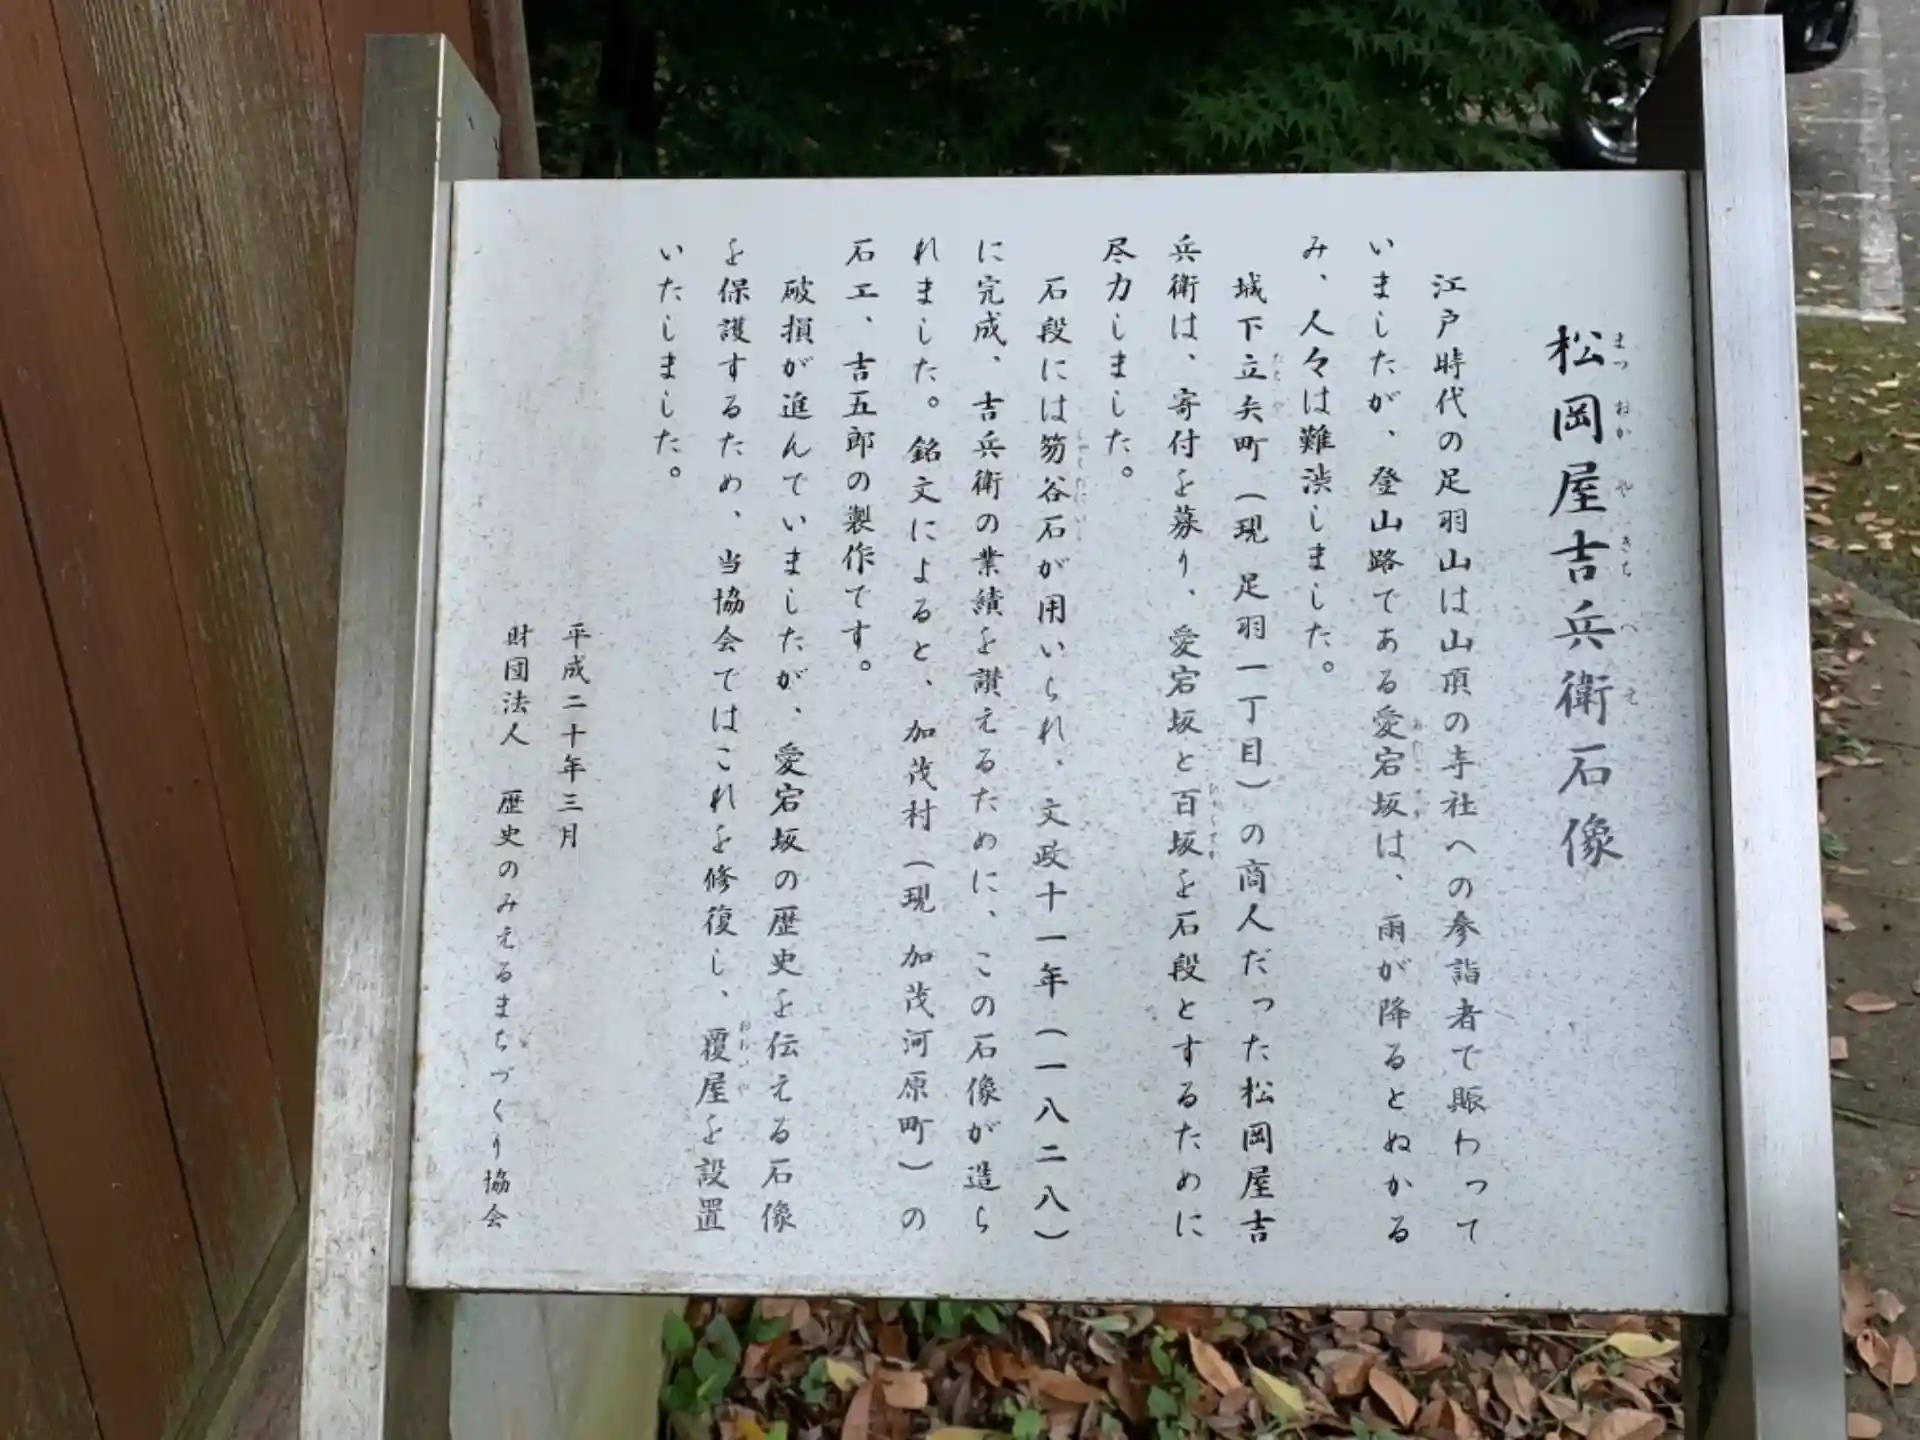 松岡屋吉兵衛石像
まつおかやきちべえ
江戸時代の足羽山は山頂の寺社への参詣者で賑わって
いましたが、登山路である愛宕坂は、雨が降るとぬかる
み、人々は難渋しました。
城下立矢町（現 足羽一丁目）の商人だった松岡屋吉
兵衛は、寄付を募り、愛宕坂と百坂を石段とするために
尽力しました。
石段には笏谷石が用いられ、文政十一年（一八二八）
に完成、吉兵衛の業績を讃えるために、この石像が造ら
れました。銘文によると、加茂村（現 加茂河原町）の
石工、吉五郎の製作です。
破損が進んでいましたが、愛宕坂の歴史を伝える石像
を保護するため、当協会ではこれを修復し、覆屋を設置
いたしました。
平成二十年三月
財団法人 歴史のみえるまちづくり協会